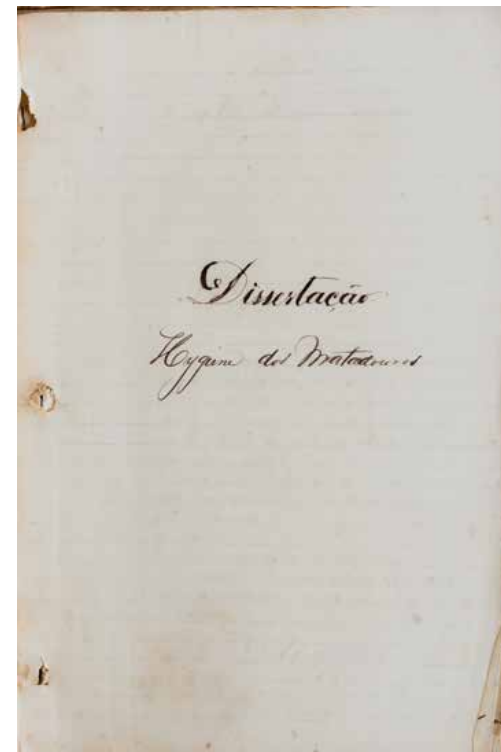 Dissertação
Hygiene dos Matadouros